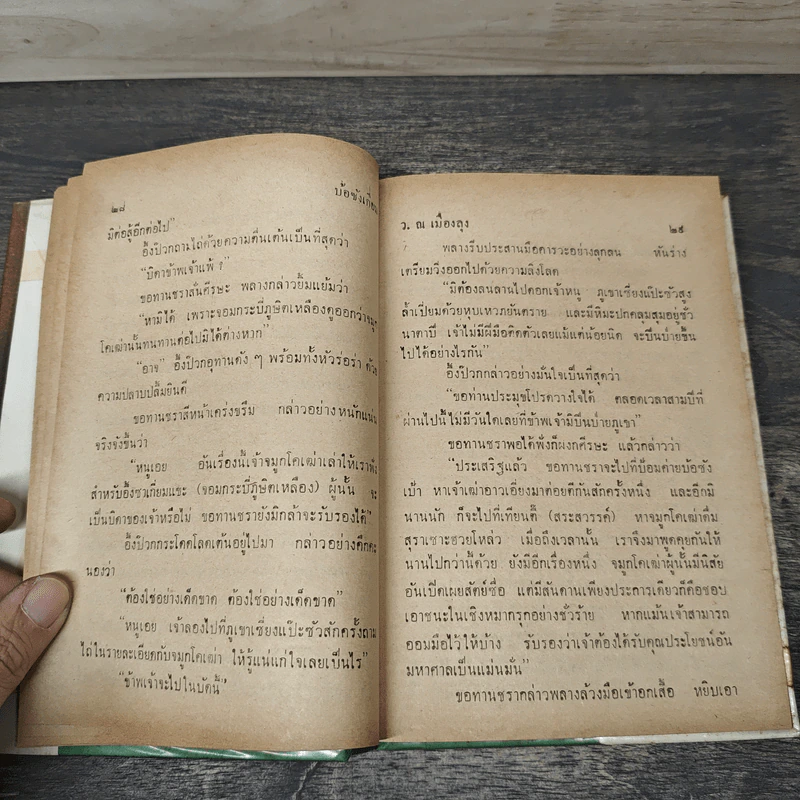 ๒๘
บ้อซังเกี่ยม
มิต่อสู้อีกต่อไป"
อึ้งป๊วกถามไถ่ด้วยความตื่นเต้นเป็นที่สุดว่า
"บิดาข้าพเจ้าแพ้ ?
ขอทานชราสั่นศีรษะ พลางกล่าวยิ้มแย้มว่า
"หามิได้ เพราะจอมกระบี่ภูษิตเหลืองดูออกว่าจมูก
โคเฒ่านั้นทนทานต่อไปมิได้ต่างหาก"
"อาจ" อึ้งป๊วกอุทานดัง ๆ พร้อมทั้งหัวร่อร่า ด้วย
ความปลาบปลื้มยินดี
ขอทานชราสีหน้าเคร่งขรึม กล่าวอย่างหนักแน่น
จริงจังขึ้นว่า
"หนูเอย อันเรื่องนี้เจ้าจมูกโคเฒ่าเล่าให้เราฟัง
สำหรับอึ้งซาเกี่ยมแขะ (จอมกระบี่ภูษิตเหลือง) ผู้นั้น จะ
เป็นบิดาของเจ้าหรือไม่ ขอทานชรายังมิกล้าจะรับรองได้"
อึ้งป๊วกกระโดดโลดเต้นอยู่ไปมา กล่าวอย่างคึกคะ
นองว่า
"ต้องใช่อย่างเด็ดขาด ต้องใช่อย่างเด็ดขาด"
"หนูเอย เจ้าลองไปที่ภูเขาเซี่ยงแป๊ะซัวสักครั้งถาม
ไถ่ในรายละเอียดกับจมูกโคเฒ่า ให้รู้แน่แก่ใจเลยเป็นไร"
"ข้าพเจ้าจะไปในบัดนี้"
ว. ณ เมืองลุง
๒๙
พลางรีบประสานมือคารวะอย่างลุกลน หันร่าง
เตรียมวิ่งออกไปด้วยความลิงโลด
"มิต้องลนลานไปดอกเจ้าหนู ภูเขาเซี่ยงแป๊ะซัวสูง
ล้ำเปี่ยมด้วยหุบเหวภยันตราย และมีหิมะปกคลุมสุมอยู่ชั่ว
นาตาปี เจ้าไม่มีฝีมือติดตัวเลยแม้แต่น้อยนิด จะปีนป่ายขึ้น
ไปได้อย่างไรกัน"
อึ้งป๊วกกล่าวอย่างมั่นใจเป็นที่สุดว่า
"ขอท่านประมุขโปรดวางใจได้ ตลอดเวลาสามปีที่
ผ่านไปนี้ไม่มีวันใดเลยที่ข้าพเจ้ามิปีนป่ายภูเขา"
ขอทานชราพอได้ฟังก็ผงกศีรษะ แล้วกล่าวว่า
"ประเสริฐแล้ว ขอทานชราจะไปที่ป้อมค่ายบ้อซัง
เป้า หาเจ้าเฒ่าอาวเอี้ยงมาต่อยตีกันสักครั้งหนึ่ง และอีกมิ
นานนัก ก็จะไปที่เทียนตี๊ (สระสวรรค์) หาจมูกโคเฒ่าดื่ม
สุราเซาะฮวยโหล่ว เมื่อถึงเวลานั้น เราจึงมาพูดคุยกันให้
นานไปกว่านี้ด้วย ยังมีอีกเรื่องหนึ่ง จมูกโคเฒ่าผู้นั้นมีนิสัย
อันเปิดเผยสัตย์ซื่อ แต่มีสันดานเพียงประการเดียวก็คือชอบ
เอาชนะในเชิงหมากรุกอย่างชั่วร้าย หากแม้นเจ้าสามารถ
ออมมือไว้ให้บ้าง รับรองว่าเจ้าต้องได้รับคุณประโยชน์อัน
มหาศาลเป็นแม่นมั่น"
ขอทานชรากล่าวพลางล้วงมือเข้าอกเสื้อ หยิบเอา